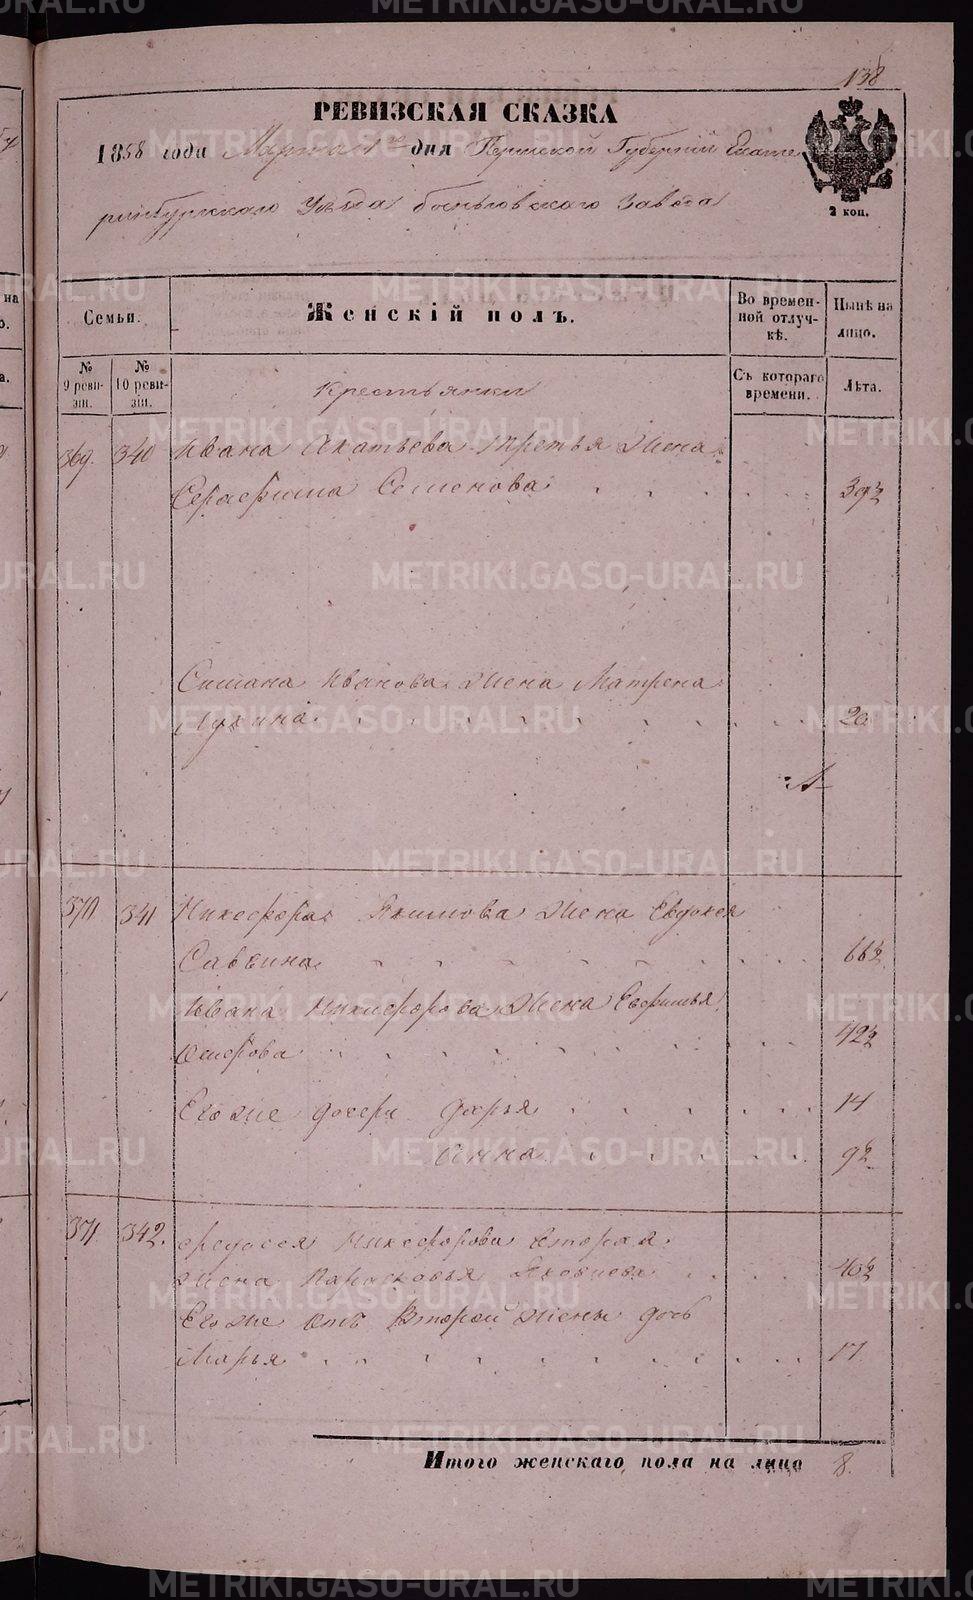 138
РЕВИЗСКАЯ СКАЗКА
1858 года Марта 1го дня Пермской Губернiи Екате
ринбургскаго Уѣзда завода
2 коп.
Семьи.
Женскiй полъ.
Во времен-
ной отлуч-
кѣ.
Нынѣ на
лицо.
№
9 реви-
зiи.
№
10 реви-
зiи.
Съ котораго
времени.
Лѣта.
Крестьянки
369. 340 Ивана Акатьева третья жена
Серафима Семенова 39½
Степана Иванова жена Матрена
20
370. 341 Никефора Якимова жена Евдокея
Саввина 66½
Ивана Никефорова жена
42½
Его же дочери Дарья 14
Анна 9½
371. 342. Никефорова вторая
жена Парасковья Яковлева 46½
Его же отъ второй жены дочь
Марья 17.
Итого женскаго пола на лицо 8.
METRIKI.GASO-URAL.RU